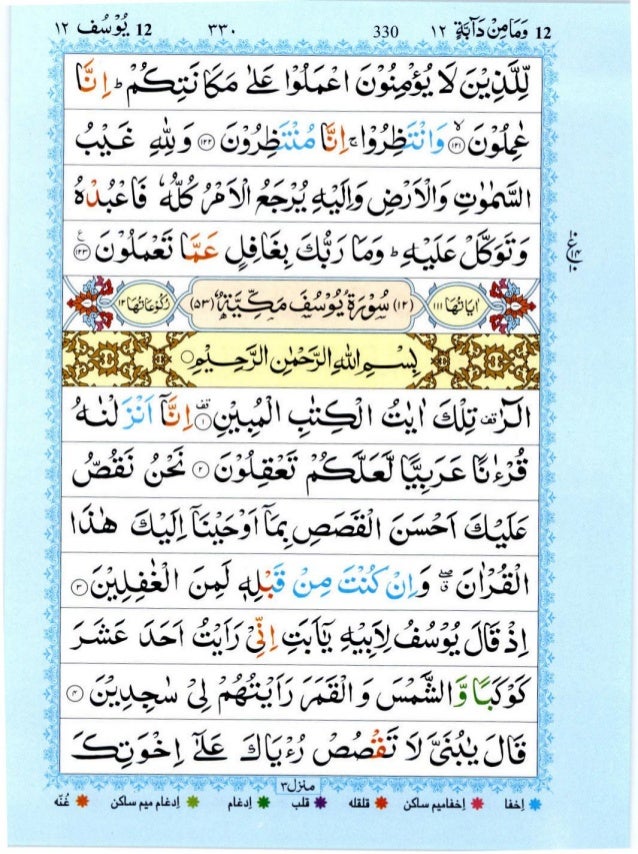 12 وَمَا مِنْ دَآبَّةٍ ١٢ 330 ٣٣٠ 12 يُوْسُف ١٢
لِّلَّذِيْنَ لَا يُؤْمِنُوْنَ اعْمَلُوْا عَلٰى مَكَانَتِكُمْ ؕ اِنَّا
عٰمِلُوْنَ ۙ﴿۱۲۱﴾ وَانْتَظِرُوْا ۚ اِنَّا مُنْتَظِرُوْنَ ﴿۱۲۲﴾ وَلِلّٰهِ غَيْبُ
السَّمٰوٰتِ وَالْاَرْضِ وَاِلَيْهِ يُرْجَعُ الْاَمْرُ كُلُّهٗ فَاعْبُدْهُ
وَتَوَكَّلْ عَلَيْهِ ؕ وَمَا رَبُّكَ بِغَافِلٍ عَمَّا تَعْمَلُوْنَ ﴿۱۲۳﴾ع
اٰيَاتُهَا ١١١ (١٢) سُوْرَةُ يُوْسُفَ مَكِّيَّةٌ (٥٣) رُكُوْعَاتُهَا ١٢
بِسْمِ اللّٰهِ الرَّحْمٰنِ الرَّحِيْمِ
الٓرٰ ۟ تِلْكَ اٰيٰتُ الْكِتٰبِ الْمُبِيْنِ ﴿۱﴾ اِنَّاۤ اَنْزَلْنٰهُ
قُرْءٰنًا عَرَبِيًّا لَّعَلَّكُمْ تَعْقِلُوْنَ ﴿۲﴾ نَحْنُ نَقُصُّ
عَلَيْكَ اَحْسَنَ الْقَصَصِ بِمَاۤ اَوْحَيْنَاۤ اِلَيْكَ هٰذَا
الْقُرْاٰنَ ۖ وَاِنْ كُنْتَ مِنْ قَبْلِهٖ لَمِنَ الْغٰفِلِيْنَ ﴿۳﴾
اِذْ قَالَ يُوْسُفُ لِاَبِيْهِ يٰۤاَبَتِ اِنِّيْ رَاَيْتُ اَحَدَ عَشَرَ
كَوْكَبًا وَّالشَّمْسَ وَالْقَمَرَ رَاَيْتُهُمْ لِيْ سٰجِدِيْنَ ﴿۴﴾
قَالَ يٰبُنَيَّ لَا تَقْصُصْ رُءْيَاكَ عَلٰۤى اِخْوَتِكَ
منزل٣
اِخفا اِخفامیم ساکن قلقله قلب اِدغام اِدغام میم ساکن غُنّه